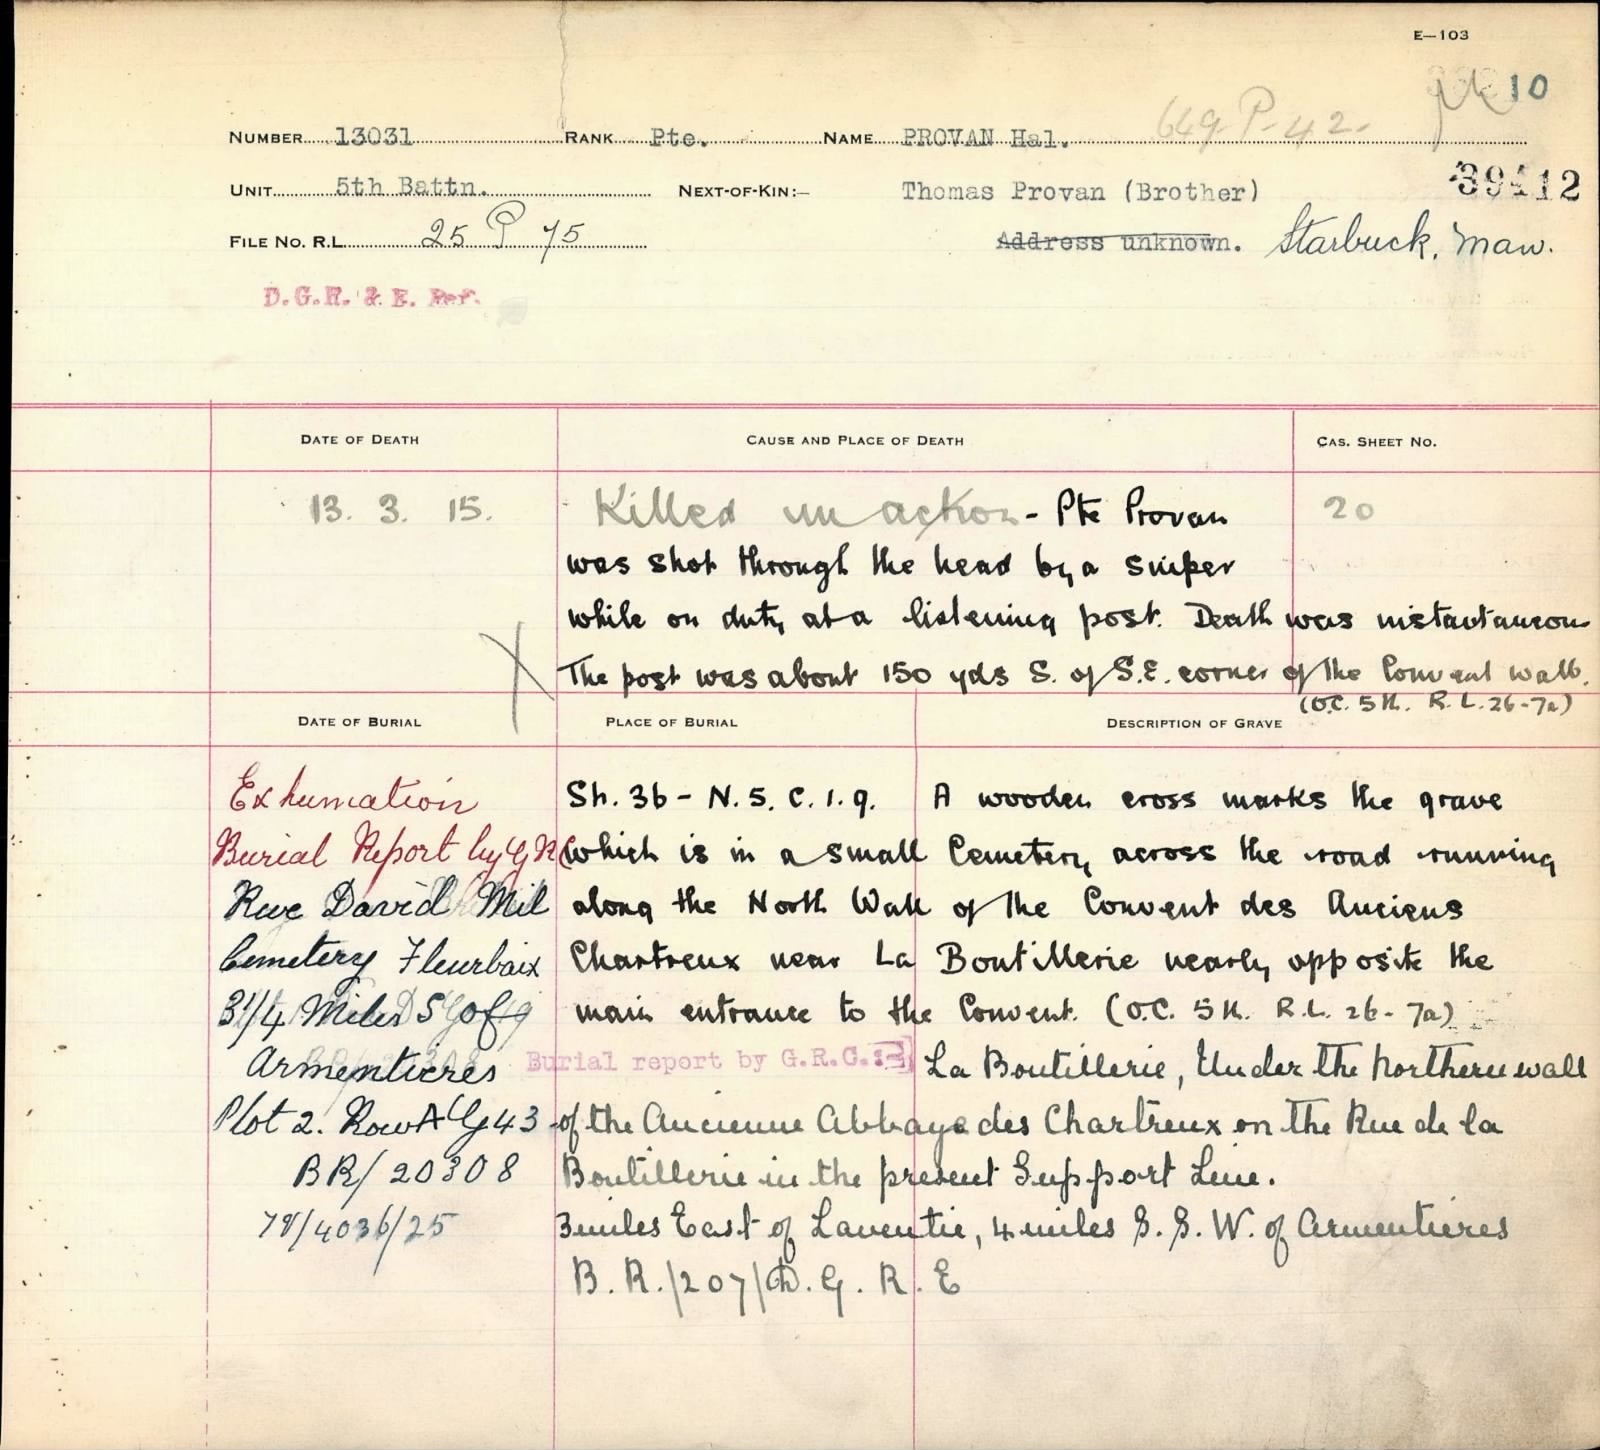 E—103
10
NUMBER 13031 RANK Pte. NAME PROVAN Hal. 649-P-42-
39412
UNIT 5th Battn. NEXT-OF-KIN:— Thomas Provan (Brother)
FILE NO. R.L. 25 P 75 Address unknown. Starbuck, Man.
D.G.R. & E. Ref.
DATE OF DEATH CAUSE AND PLACE OF DEATH CAS. SHEET NO.
13. 3. 15. Killed in action - Pte Provan 20
was shot through the head by a sniper
while on duty at a listening post. Death was instantaneous
The post was about 150 yds S. of S.E. corner of the Convent wall.
(O.C. 5th. R.L. 26-7a)
DATE OF BURIAL PLACE OF BURIAL DESCRIPTION OF GRAVE
Exhumation Sh. 36 - N. 5. C. 1. 9. A wooden cross marks the grave
Burial Report by G R C which is in a small Cemetery across the road running
Rue David Mil along the North Wall of the Convent des Anciens
Cemetery Fleurbaix Chartreux near La Boutillerie nearly opposite the
3 1/4 Miles of main entrance to the Convent. (O.C. 5th. R.L. 26-7a)
Armentieres Burial report by G.R.C.:- La Boutillerie, Under the Northern wall
Plot 2. Row A G 43 of the Ancienne Abbaye des Chartreux on the Rue de la
BR/20308 Boutillerie in the present Support Line.
78/4036/25 3 miles East of Laventie, 4 miles S. S. W. of Armentieres
B. R./207/D. G. R. E